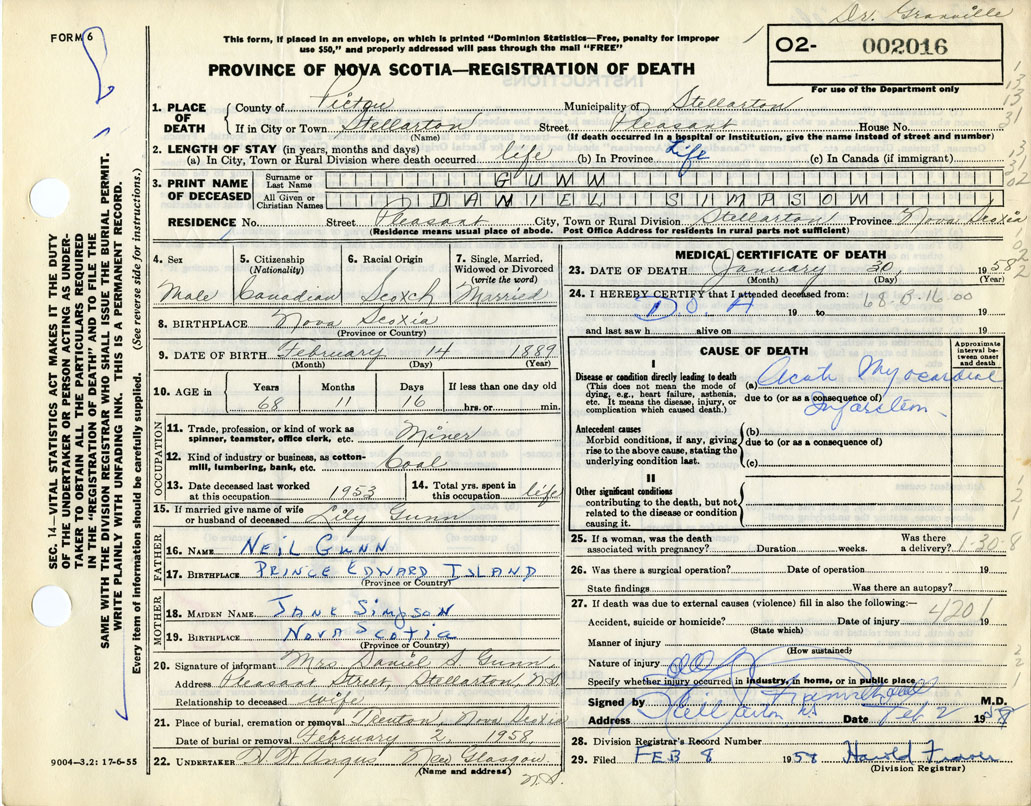 Dr. Granville
FORM 6
This form, if placed in an envelope, on which is printed "Dominion Statistics—Free, penalty for improper
use $50," and properly addressed will pass through the mail "FREE"
02- 002016
For use of the Department only
PROVINCE OF NOVA SCOTIA—REGISTRATION OF DEATH
1. PLACE OF DEATH
County of Pictou Municipality of Stellarton
If in City or Town Stellarton Street Pleasant House No.
(Name) (If death occurred in a hospital or institution, give the name instead of street and number)
2. LENGTH OF STAY (in years, months and days)
(a) In City, Town or Rural Division where death occurred life (b) In Province Life (c) In Canada (if immigrant)
3. PRINT NAME OF DECEASED
Surname or Last Name GUNN
All Given or Christian Names DANIEL SIMPSON
RESIDENCE No. Street Pleasant City, Town or Rural Division Stellarton Province Nova Scotia
(Residence means usual place of abode. Post Office Address for residents in rural parts not sufficient)
4. Sex
Male
5. Citizenship (Nationality)
Canadian
6. Racial Origin
Scotch
7. Single, Married, Widowed or Divorced (write the word)
Married
8. BIRTHPLACE Nova Scotia
(Province or Country)
9. DATE OF BIRTH February 14 1889
(Month) (Day) (Year)
10. AGE in
Years Months Days If less than one day old
68 11 16 hrs. or min.
OCCUPATION
11. Trade, profession, or kind of work as
spinner, teamster, office clerk, etc. Miner
12. Kind of industry or business, as cotton-
mill, lumbering, bank, etc. Coal
13. Date deceased last worked
at this occupation 1953
14. Total yrs. spent in
this occupation life
15. If married give name of wife
or husband of deceased Lily Gunn
FATHER
16. NAME NEIL GUNN
17. BIRTHPLACE PRINCE EDWARD ISLAND
(Province or Country)
MOTHER
18. MAIDEN NAME JANE SIMPSON
19. BIRTHPLACE NOVA SCOTIA
(Province or Country)
20. Signature of informant Mrs Daniel S. Gunn
Address Pleasant Street, Stellarton, N.S.
Relationship to deceased wife
21. Place of burial, cremation or removal Trenton, Nova Scotia
Date of burial or removal February 2, 1958
22. UNDERTAKER H W Angus New Glasgow
(Name and address) N.S.
MEDICAL CERTIFICATE OF DEATH
23. DATE OF DEATH January 30, 1958
(Month) (Day) (Year)
24. I HEREBY CERTIFY that I attended deceased from: 68-B-16-00
D.O.A 19 to 19
and last saw h alive on 19
CAUSE OF DEATH
Approximate interval between onset and death
I
Disease or condition directly leading to death
(This does not mean the mode of
dying, e.g., heart failure, asthenia,
etc. It means the disease, injury, or
complication which caused death.)
(a) Acute Myocardial
due to (or as a consequence of)
Infarction
Antecedent causes
Morbid conditions, if any, giving
rise to the above cause, stating the
underlying condition last.
(b)
due to (or as a consequence of)
(c)
II
Other significant conditions
contributing to the death, but not
related to the disease or condition
causing it.
25. If a woman, was the death
associated with pregnancy? Duration weeks. Was there
a delivery? 1-30-8
26. Was there a surgical operation? Date of operation 19
State findings Was there an autopsy?
27. If death was due to external causes (violence) fill in also the following:—
4201
Accident, suicide or homicide? Date of injury 19
(State which)
Manner of injury
(How sustained)
Nature of injury
Specify whether injury occurred in industry, in home, or in public place
Signed by M.D.
Address Stellarton NS Date Feb 2 1958
28. Division Registrar's Record Number
29. Filed FEB 8 1958 Harold
(Division Registrar)
SEC. 14—VITAL STATISTICS ACT MAKES IT THE DUTY
OF THE UNDERTAKER OR PERSON ACTING AS UNDER-
TAKER TO OBTAIN ALL THE PARTICULARS REQUIRED
IN THE "REGISTRATION OF DEATH" AND TO FILE THE
SAME WITH THE DIVISION REGISTRAR WHO SHALL ISSUE THE BURIAL PERMIT.
WRITE PLAINLY WITH UNFADING INK. THIS IS A PERMANENT RECORD.
Every item of information should be carefully supplied. (See reverse side for instructions.)
9004—3.2: 17-6-55